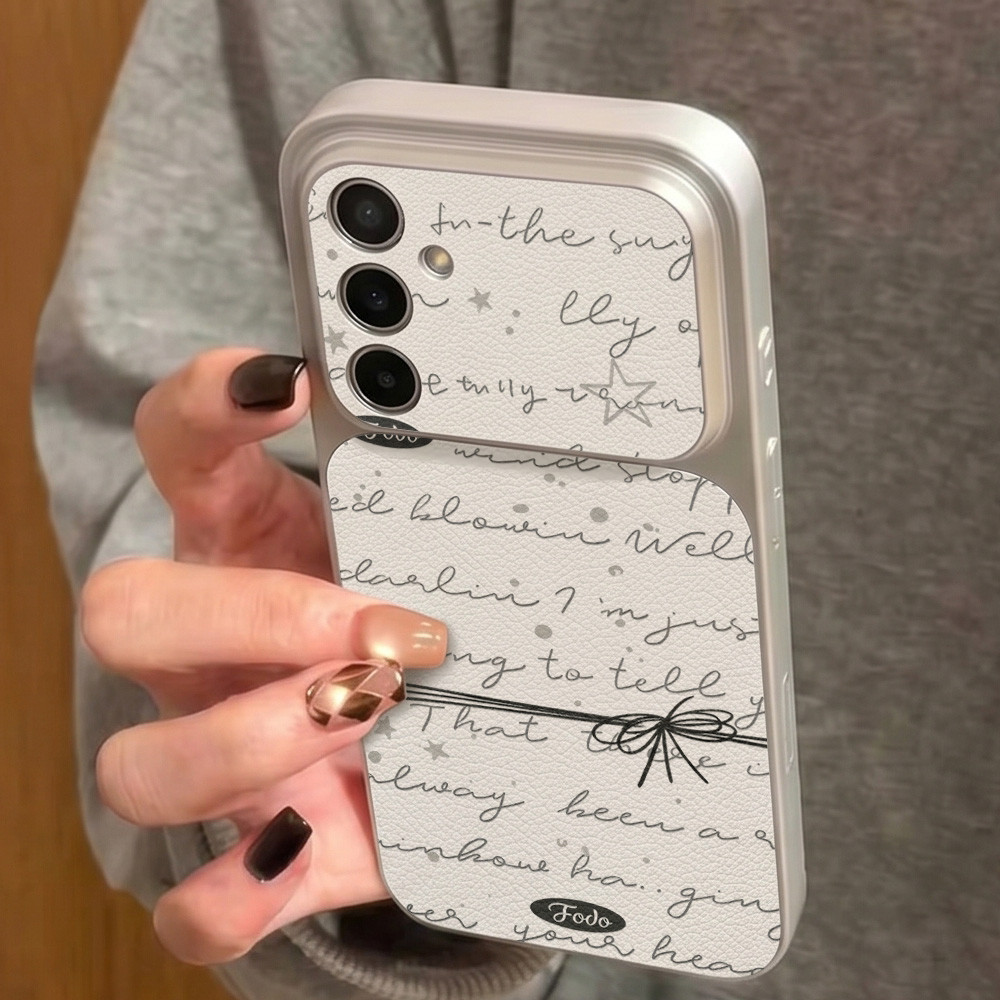 In-the
lly
Fodo
wind stopp
ed blowin Well
darlin I'm jus
ng to tell y
That
lway been a
inbow ha.. gin
ver your head
Fodo